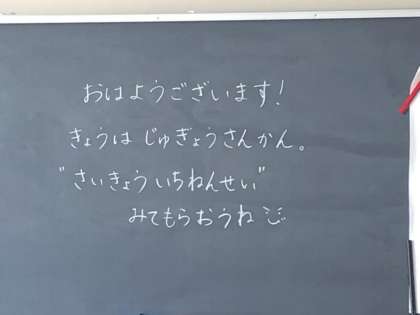 おはようございます!
きょうは じゅぎょうさんかん。
"さいきょう いちねんせい"
みてもらおうね